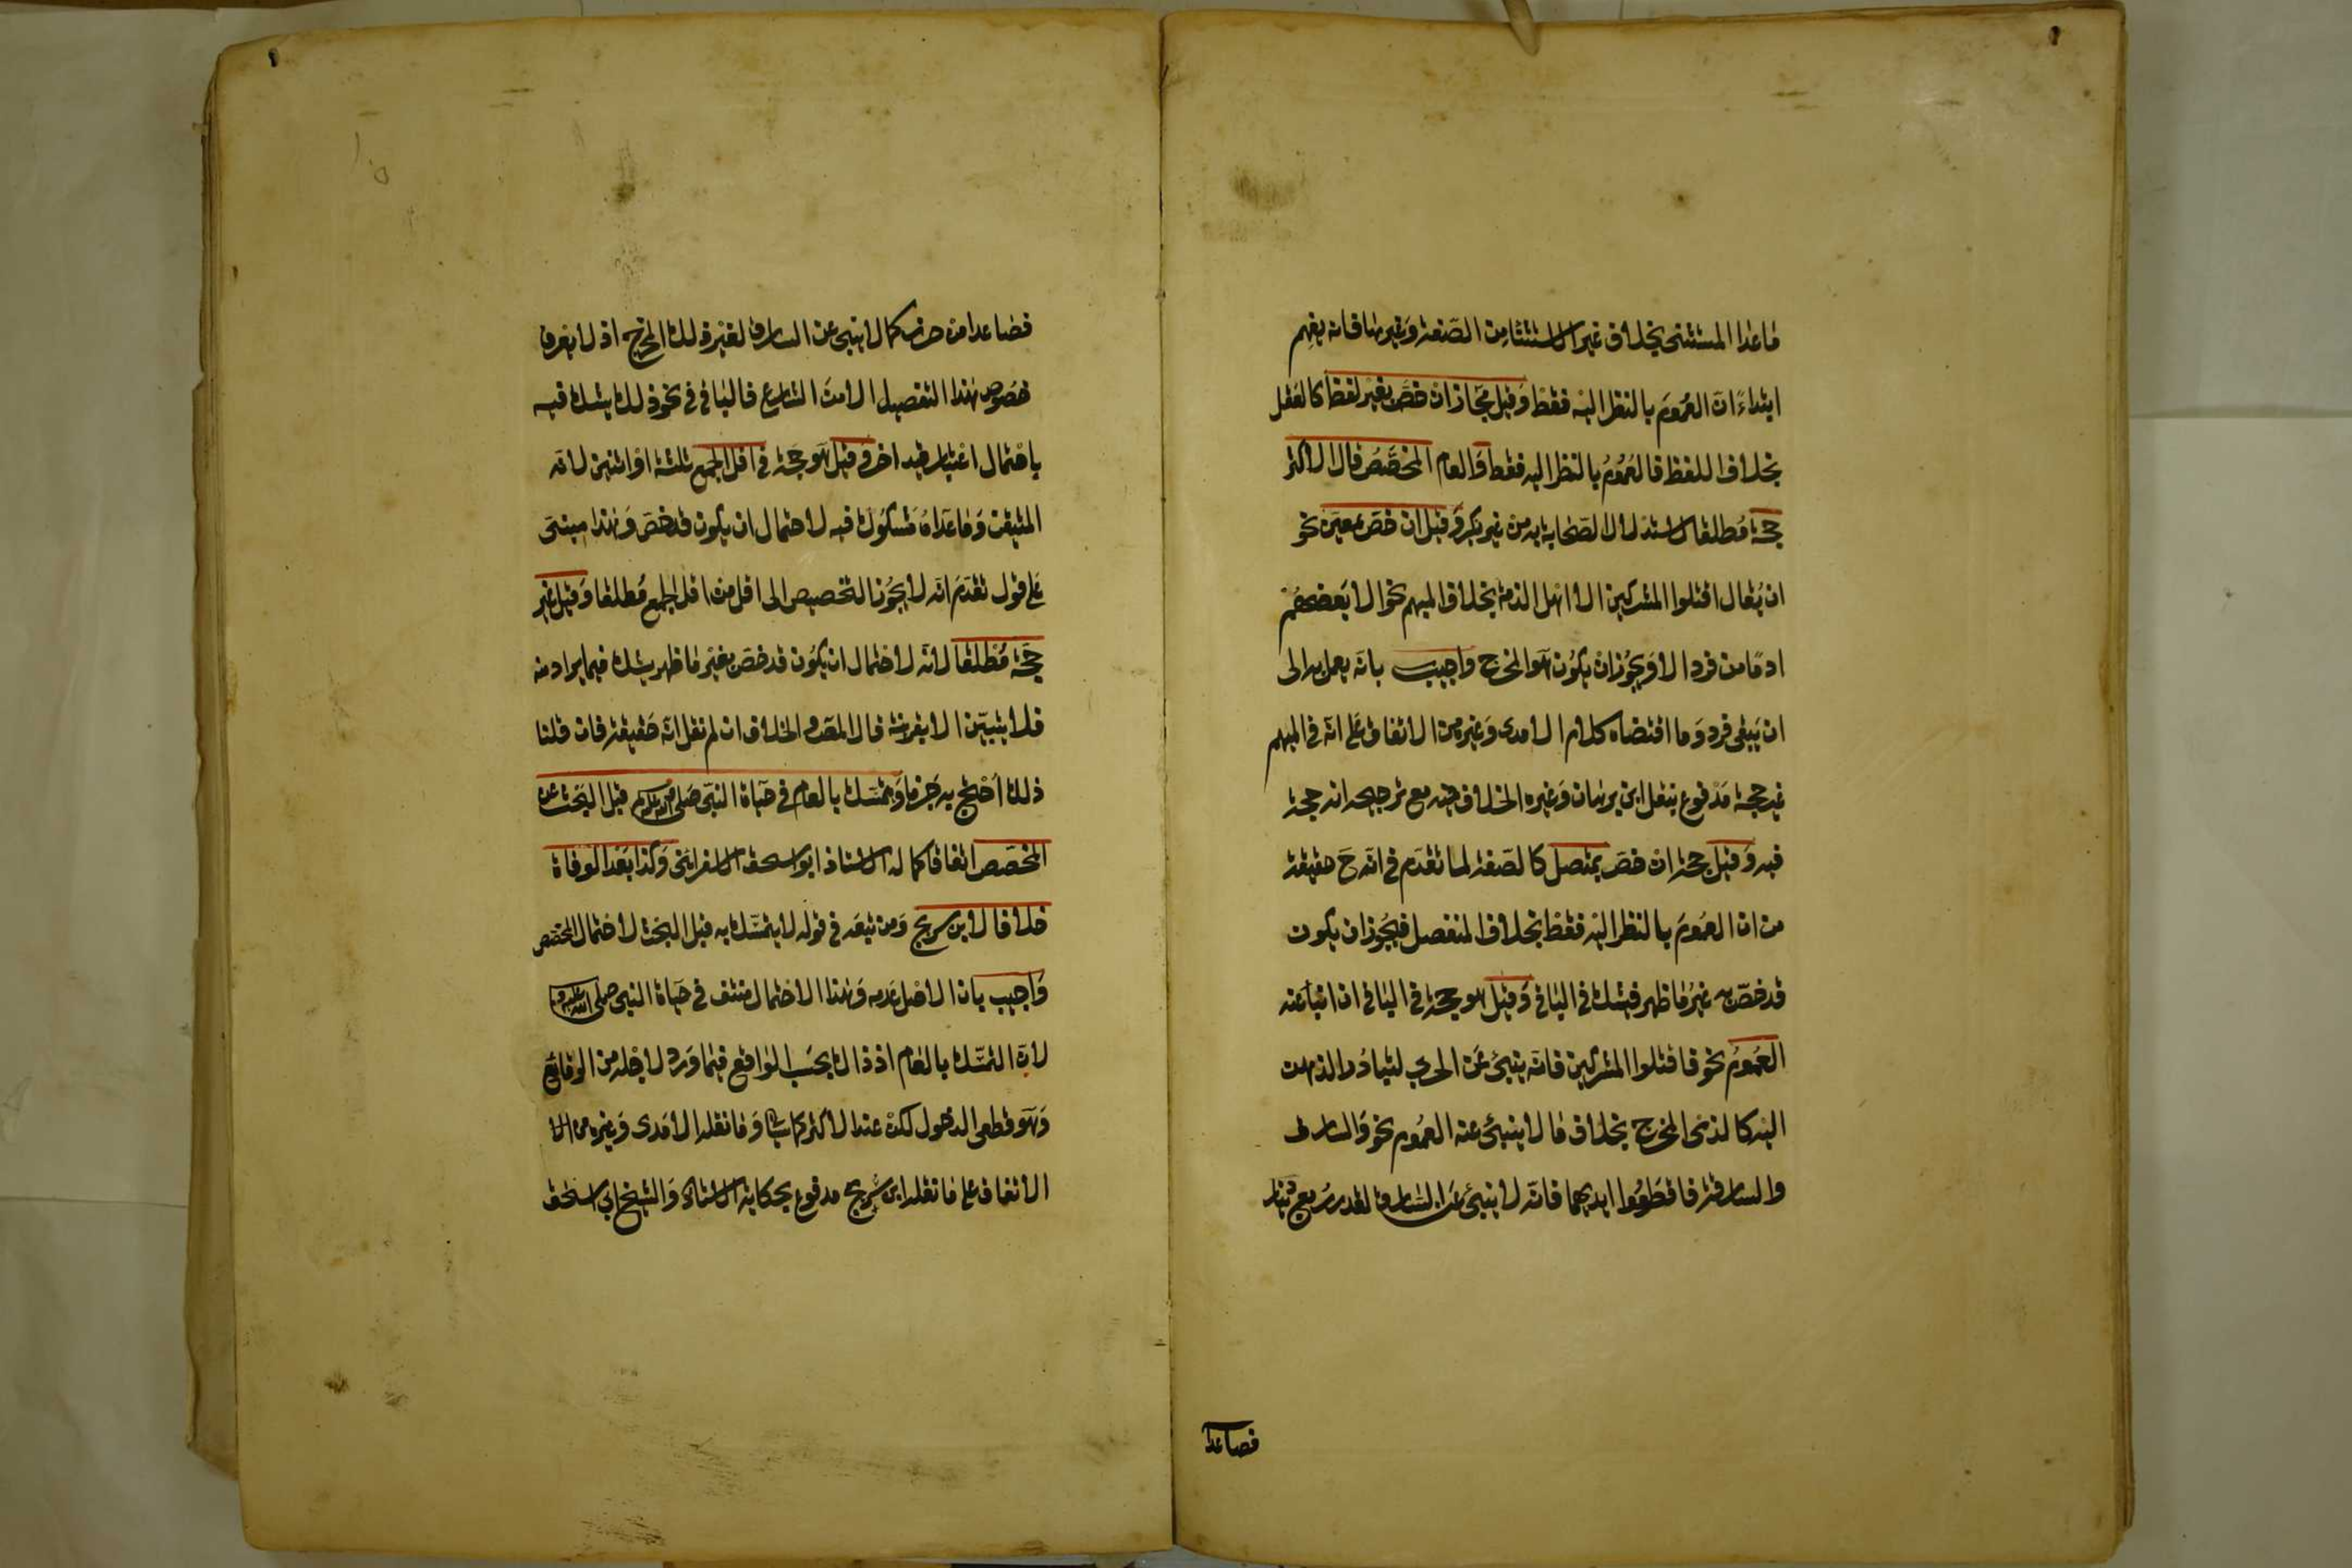 ماعدا المستثنى بخلاف غير الاستثنا من الصفة وغيرها فانه يفهم
ابتداءً ان العموم بالنظر اليه فقط وقيل مجاز ان خص بغير لفظ كالعقل
بخلاف اللفظ فالعموم بالنظر اليه فقط والعام المخصص قال الاكثر
حجة مطلقا لاستدلال الصحابة به من غير نكير وقيل ان خص بمعين نحو
ان يقال اقتلوا المشركين الا اهل الذمة بخلاف المبهم نحو الا بعضهم
اذ ما من فرد الا ويجوز ان يكون هو المخرج واجيب بانه يعمل به الى
ان يبقى فرد وما اقتضاه كلام الامدى وغيره من الاتفاق على انه فى المبهم
غير حجة مدفوع بنقل ابن برهان وغيره الخلاف فيه مع ترجيحه انه حجة
فيه وقيل حجة ان خص بمتصل كالصفة لما تقدم فى انه ح حقيقة
من ان العموم بالنظر اليه فقط بخلاف المنفصل فيجوز ان يكون
قد خص به غير ما ظهر فيشك فى الباقى وقيل هو حجة فى الباقى ان انبأ عنه
العموم نحو فاقتلوا المشركين فانه ينبئ عن الحربى لتبادر الذهن
اليه كالذمى المخرج بخلاف ما لا ينبئ عنه العموم نحو والسارق
والسارقة فاقطعوا ايديهما فانه لا ينبئ عن السارق لقدر ربع دينار
فصاعدا
فصاعدا من حرز كما لا ينبئ عن السارق لغير ذلك المخرج اذ لا يعرف
خصوص هذا التفصيل الا من الشارع فالباقى فى نحو ذلك يشك فيه
باحتمال اعتبار قيد اخر وقيل هو حجة فى اقل الجمع ثلثة او اثنين لانه
المتيقن وما عداه مشكوك فيه لاحتمال ان يكون قد خص وهذا مبنى
على قول تقدم انه لا يجوز التخصيص الى اقل من اقل الجمع مطلقا وقيل غير
حجة مطلقا لانه لاحتمال ان يكون قد خص بغير ما ظهر يشك فيما يراد منه
فلا يتبين الا بقرينة قال المص والخلاف ان لم نقل انه حقيقة فان قلنا
ذلك احتج به جزما ويتمسك بالعام فى حياة النبى صلى الله عليه وسلم قبل البحث عن
المخصص اتفاقا كما له الاستاذ ابو اسحق الاسفراينى وكذا بعد الوفاة
خلافا لابن سريج ومن تبعه فى قوله لا يتمسك به قبل البحث لاحتمال المخصص
واجيب بان الاصل عدمه وهذا الاحتمال منتف فى حياة النبى صلى الله عليه وسلم
لان التمسك بالعام اذ ذاك بحسب الواقع فيما ورد لاجله من الوقائع
وهو قطعى الدخول لكن عند الاكثر كما سيأتى وما نقله الامدى وغيره من
الاتفاق على ما نقله ابن سريج مدفوع بحكاية الاستاذ والشيخ ابى اسحق